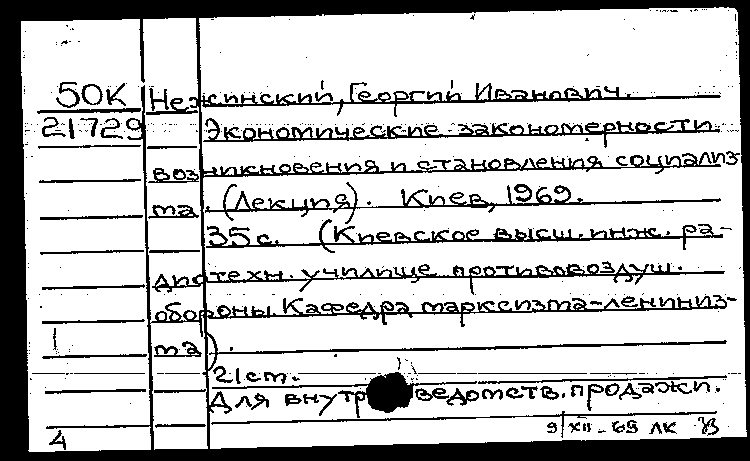 50К Нежинский, Георгий Иванович.
21729 Экономические закономерности
возникновения и становления социализ-
ма. (Лекция). Киев, 1969.
35 с. (Киевское высш. инж. ра-
диотехн. училище противовоздуш.
обороны. Кафедра марксизма-лениниз-
ма).
21 см.
Для внутриведомств. продажи.
4 9/XII-69 ЛК